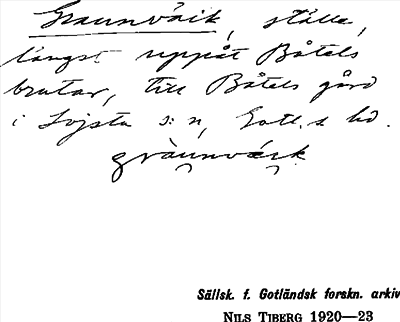 Graunväik, ställe,
längst uppåt Båtels
brutar, till Båtels gård
i Lojsta s:n, Gotl. s. hd.
gràunvack
Sällsk. f. Gotländsk forskn. arkiv
NILS TIBERG 1920—23